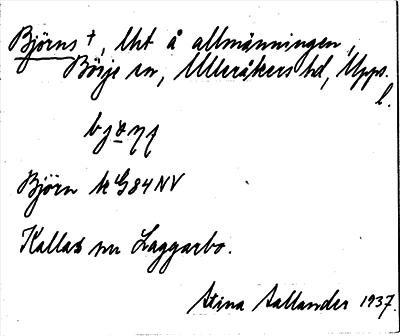 Björns +, Utt å allmänningen,
Börje sn, Ulleråkers hd, Upps.
l.
bjö̱ɳʃ
Björn k G84NV
Kallas nu Laggarbo.
Stina Sallander 1937.